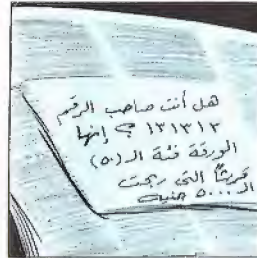 هل أنت صاحب الرقم
١٣١٣١٣ ؟ إنها
الورقة فئة الـ (٥٠)
قرشاً التى ربحت
الـ ٥٠٠٠ جنيه